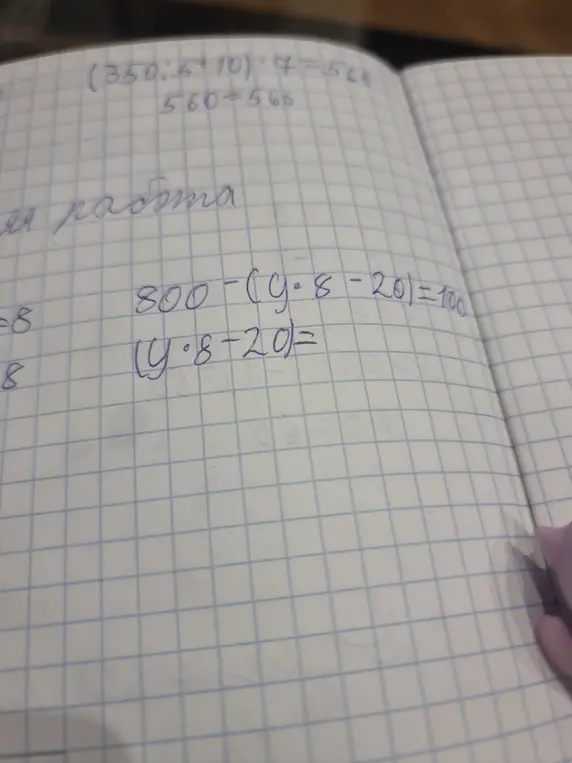 (350:5+10)·7=560
560=560
я работа
=8
800-(y·8-20)=100
8
(y·8-20)=